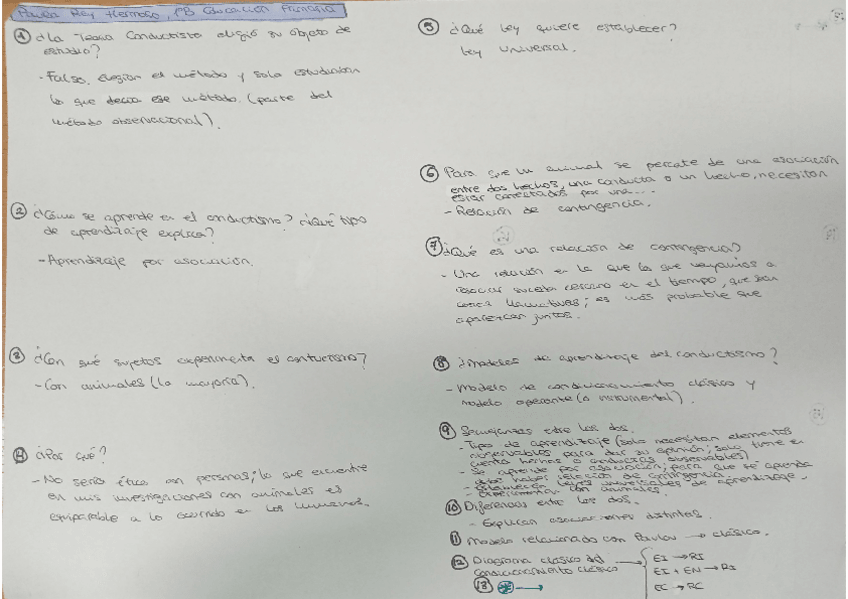 Paula Rey Hermoso, PB Educación Primaria
1 ¿La Teoría Conductista eligió su objeto de
estudio?
- Falso, elegían el método y solo estudiaban
lo que decía ese método. (parte del
método observacional).
2 ¿Cómo se aprende en el conductismo? ¿Qué tipo
de aprendizaje explica?
- Aprendizaje por asociación.
3 ¿Con qué sujetos experimenta el
- Con animales (la mayoría).
4 ¿Por qué?
- No sería ético con personas; lo que encuentre
en mis investigaciones con animales es
equiparable a lo ocurrido en los humanos.
5 ¿Qué ley quiere establecer?
Ley Universal.
6 Para que un animal se percate de una asociación
entre dos hechos, una conducta o un hecho, necesitan
estar conectados por una...
- Relación de contingencia.
7 ¿Qué es una relación de contingencia?
- Una relación en la que lo que vayamos a
asociar suceda cercano en el tiempo, que sean
cosas llamativas; es más probable que
aparezcan juntos.
8 ¿Modelos de aprendizaje del conductismo?
- Modelo de condicionamiento clásico y
modelo operante (o instrumental).
9 Semejanzas entre los dos.
- Tipo de aprendizaje (solo necesitan elementos
observables para dar su opinión; solo tiene en
cuenta hechos o conductas observables)
- Se aprende por asociación; para que se aprenda
debe haber relación de contingencia
- Establecen leyes universales de aprendizaje.
- Experimentan con animales.
10 Diferencias entre los dos.
- Explican asociaciones distintas.
11 Modelo relacionado con Pavlov → clásico.
12 Diagrama clásico del
condicionamiento clásico →
EI → RI
EI + EN → RI
EC → RC
13 →